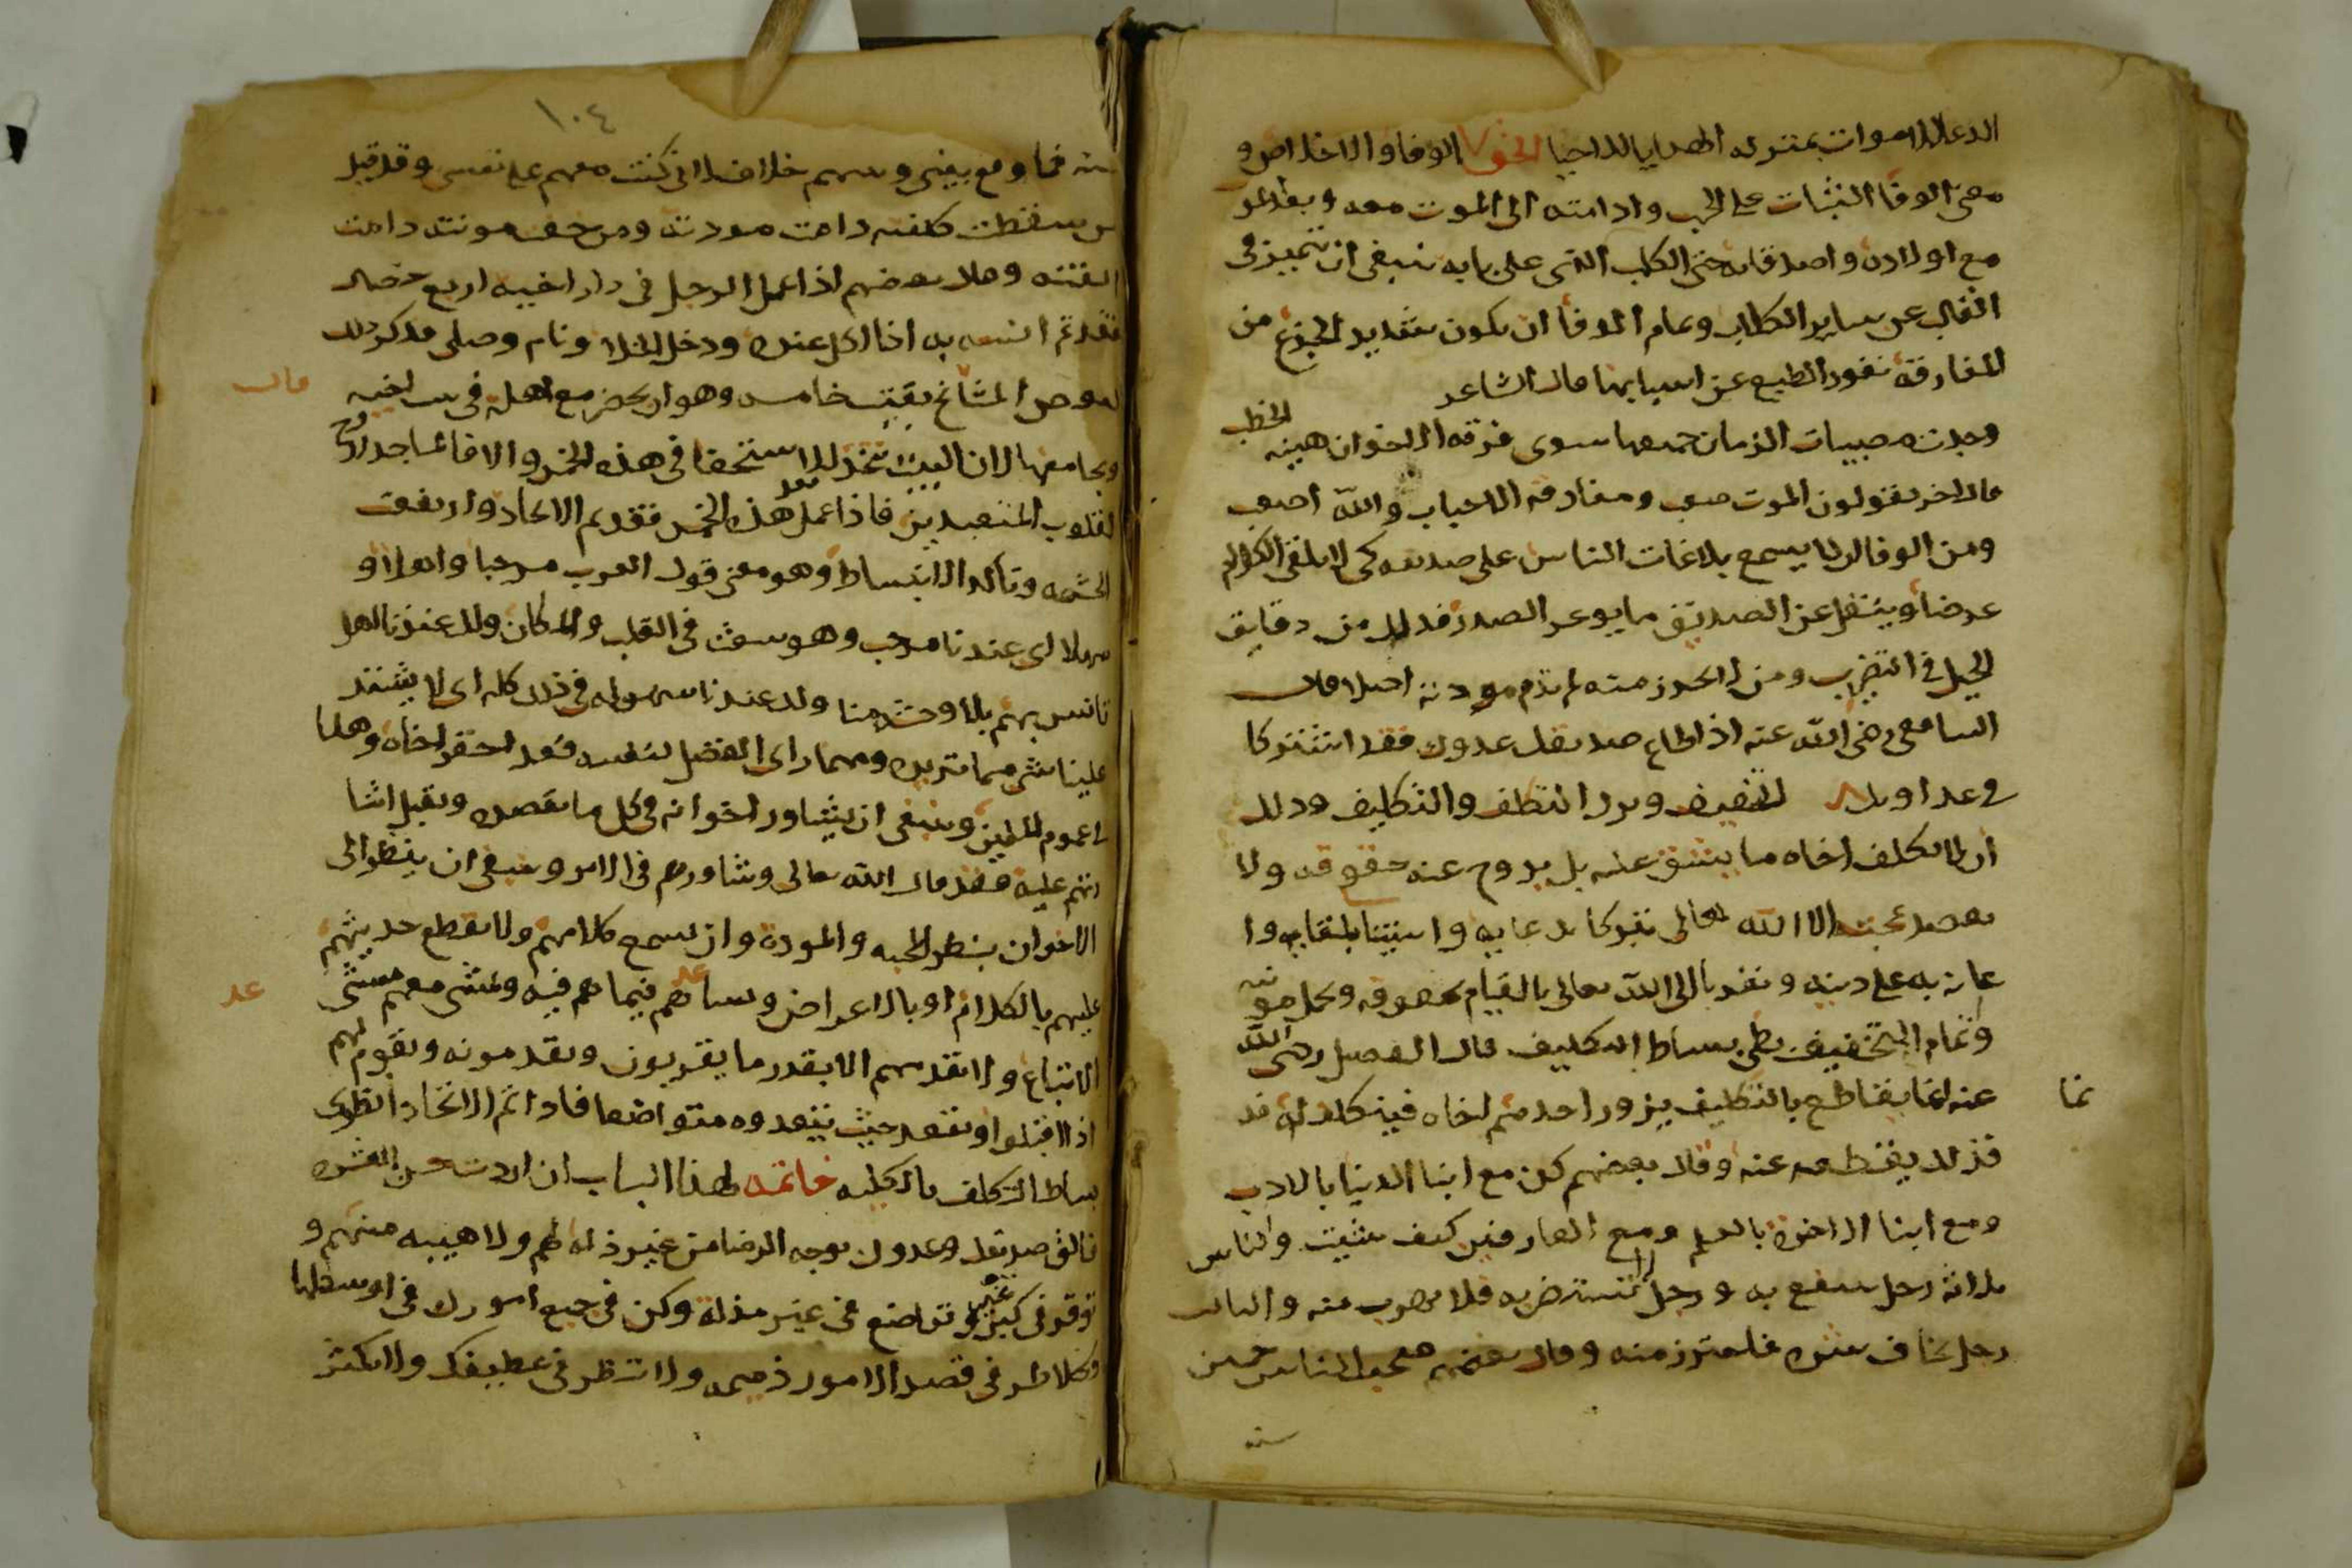 الدعا للاموات بمنزله الهدايا للاحيا الحق ٧ الوفا والاخلاص و
معنى الوفا الثبات على الحب وادامته الى الموت معه وبعد
مع اولاده واصدقائه حتى الكلب الذى على بابه ينبغى ان تتميز فى
القلب عن ساير الكلاب وتمام الوفا ان يكون شديد الجزع من
المفارقة نفور الطبع عن اسبابها قال الشاعر
وجدت مصيبات الزمان جميعها سوى فرقه الاخوان هينه الخطب
قال اخر يقولون الموت صعب ومفارقه الاحباب والله اصعب
ومن الوفا ان لا يسمع بلاغات الناس على صديقه كى لا يلقى
عرضا وينقل عن الصديق ما يوغر الصدر فذلك من دقايق
الحيل فى التضريب ومن لم يحترز منه لم تدم مودته اصلا قال
الشافعى رضى الله عنه اذا اطاع صديقك عدوك فقد اشتركا
فى عداوتك ٨ التخفيف وترك التكلف والتكليف وذلك
ان لا يكلف اخاه ما يشق عليه بل يروح عنه حقوقه ولا
يقصد بمحبته الا الله تعالى تبركا بدعايه واستيناسا بلقايه وا
عانة به على دينه وتقربا الى الله تعالى بالقيام بحقوقه وتحمل مونته
وتمام التخفيف بطى بساط التكليف قال الفضيل رضى الله
عنه انما تقاطع بالتكليف يزور احدهم اخاه فيتكلف له
فذلك يقطعه عنه وقال بعضهم كن مع ابنا الدنيا بالادب
ومع ابنا الاخرة بالعلم ومع العارفين كيف شيت والناس
ثلاثة رجل ينتفع به ورجل لا تستضر به فلا تهرب منه والثالث
رجل تخاف شره فلتحترز منه وقال بعضهم صحبت الناس خمسين
سنه
تما
١٠٤
سنه فما وقع بينى وبينهم خلاف لانى كنت معهم على نفسى وقد قيل
من سقطت كلفته دامت مودته ومن خفت مونته دامت
الفته وقال بعضهم اذا عمل الرجل فى دار اخيه اربع خصال
فقد تم انسه به اذا اكل عنده ودخل الخلا ونام وصلى فذكر ذلك
لبعض المشائخ بقيت خامسه وهو ان يحضر مع اهله فى بيت اخيه
قال
ويجامعها لان البيت يتخذ للاستخفا فى هذه الخمس والا فالمساجد اروح
لقلوب المتعبدين فاذا عمل هذه الخمس فقد تم الاتحاد وارتفعت
الحشمه وتاكد الانبساط وهو معنى قول العرب مرحبا واهلا و
سهلا اى عندنا مرحب وهو سعة فى القلب والمكان ولك عندنا اهل
تانس بهم بلا وحشة منا ولك عندنا سهوله فى ذلك كله اى لا يشتد
علينا شى مما تريد ومهما راى الفضل لنفسه فقد احتقر اخاه وهذا
فى عموم المسلمين وينبغى ان يشاور اخوانه فى كل ما يقصده ويقبل اشا
رتهم عليه فقد قال الله تعالى وشاورهم فى الامر وينبغى ان ينظر الى
الاخوان بنظر المحبه والمودة وان يسمع كلامهم ولا يقطع حديثهم
عليهم بالكلام او بالاعراض ويساعدهم فيما هم فيه ويمشى معهم مشى
عد
الاتباع ولا يتقدمهم الا بقدر ما يقربون ويقدمونه ويقوم لهم
اذا اقبلوا ويقعد حيث يقعدوه متواضعا فاذا تم الاتحاد انطوى
بساط التكلف بالكليه خاتمه لهذا الباب ان اردت حسن العشرة
فالق صديقك وعدوك بوجه الرضا من غير ذله لهم ولا هيبه منهم و
توقر فى غير كبر وتواضع فى غير مذلة وكن فى جميع امورك فى اوسطها
وكلا طرفى قصد الامور ذميمه ولا تنظر فى عطيفك ولا تكثر